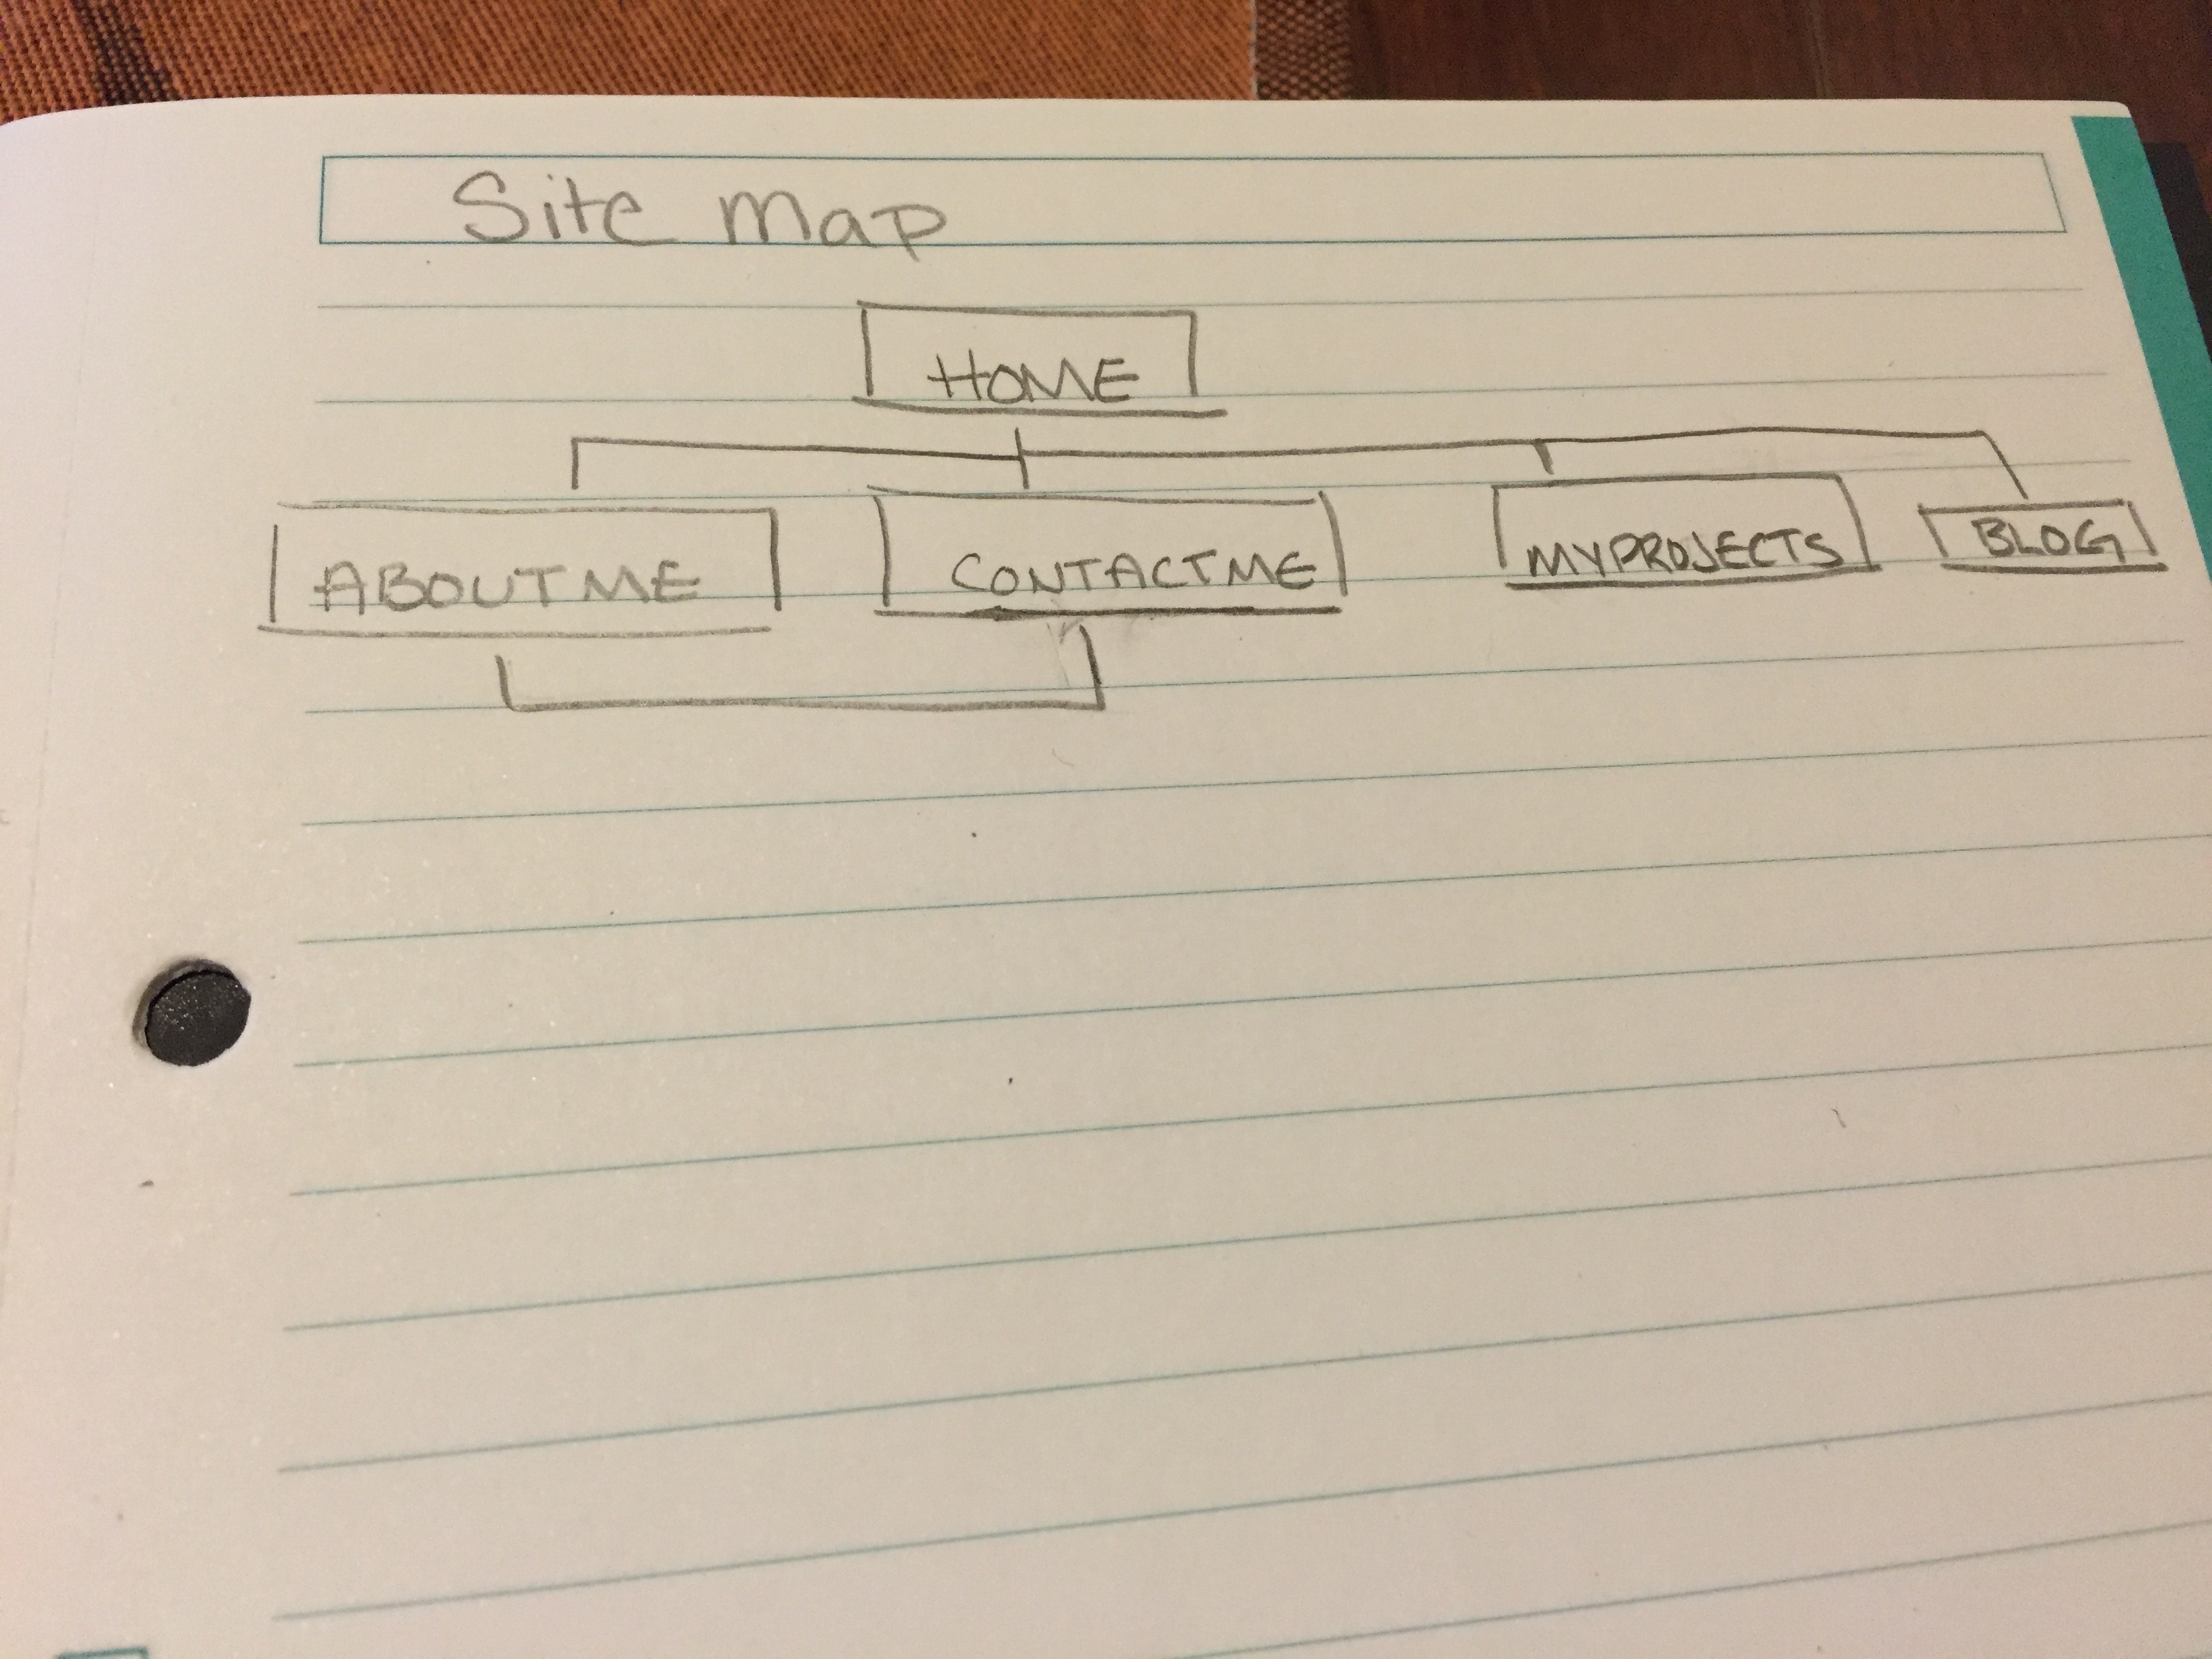 Site Map
HOME
ABOUT ME
CONTACT ME
MYPROJECTS
BLOG